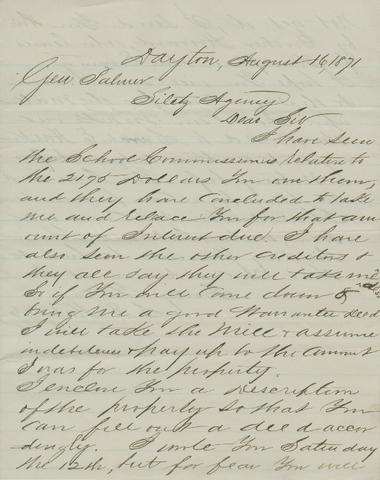 Dayton, August 16, 1871
Gen Palmer
Siletz Agency
Dear Sir
I have seen
the School Commissioners relative to
the 2175 Dollars You owe them,
and they have concluded to take
me and release You for that am
ount of Interest due. I have
also seen the other creditors &
they all say they will take me
So if You will come down &
bring me a good Warrantee Deed
I will take the Mill & assume
indebtedness & pay up to the Commit
for the property.
I enclose You a Description
of the property so that You
can fill out a deed accor
dingly. I wrote You Saturday
the 12th, but for fear You will